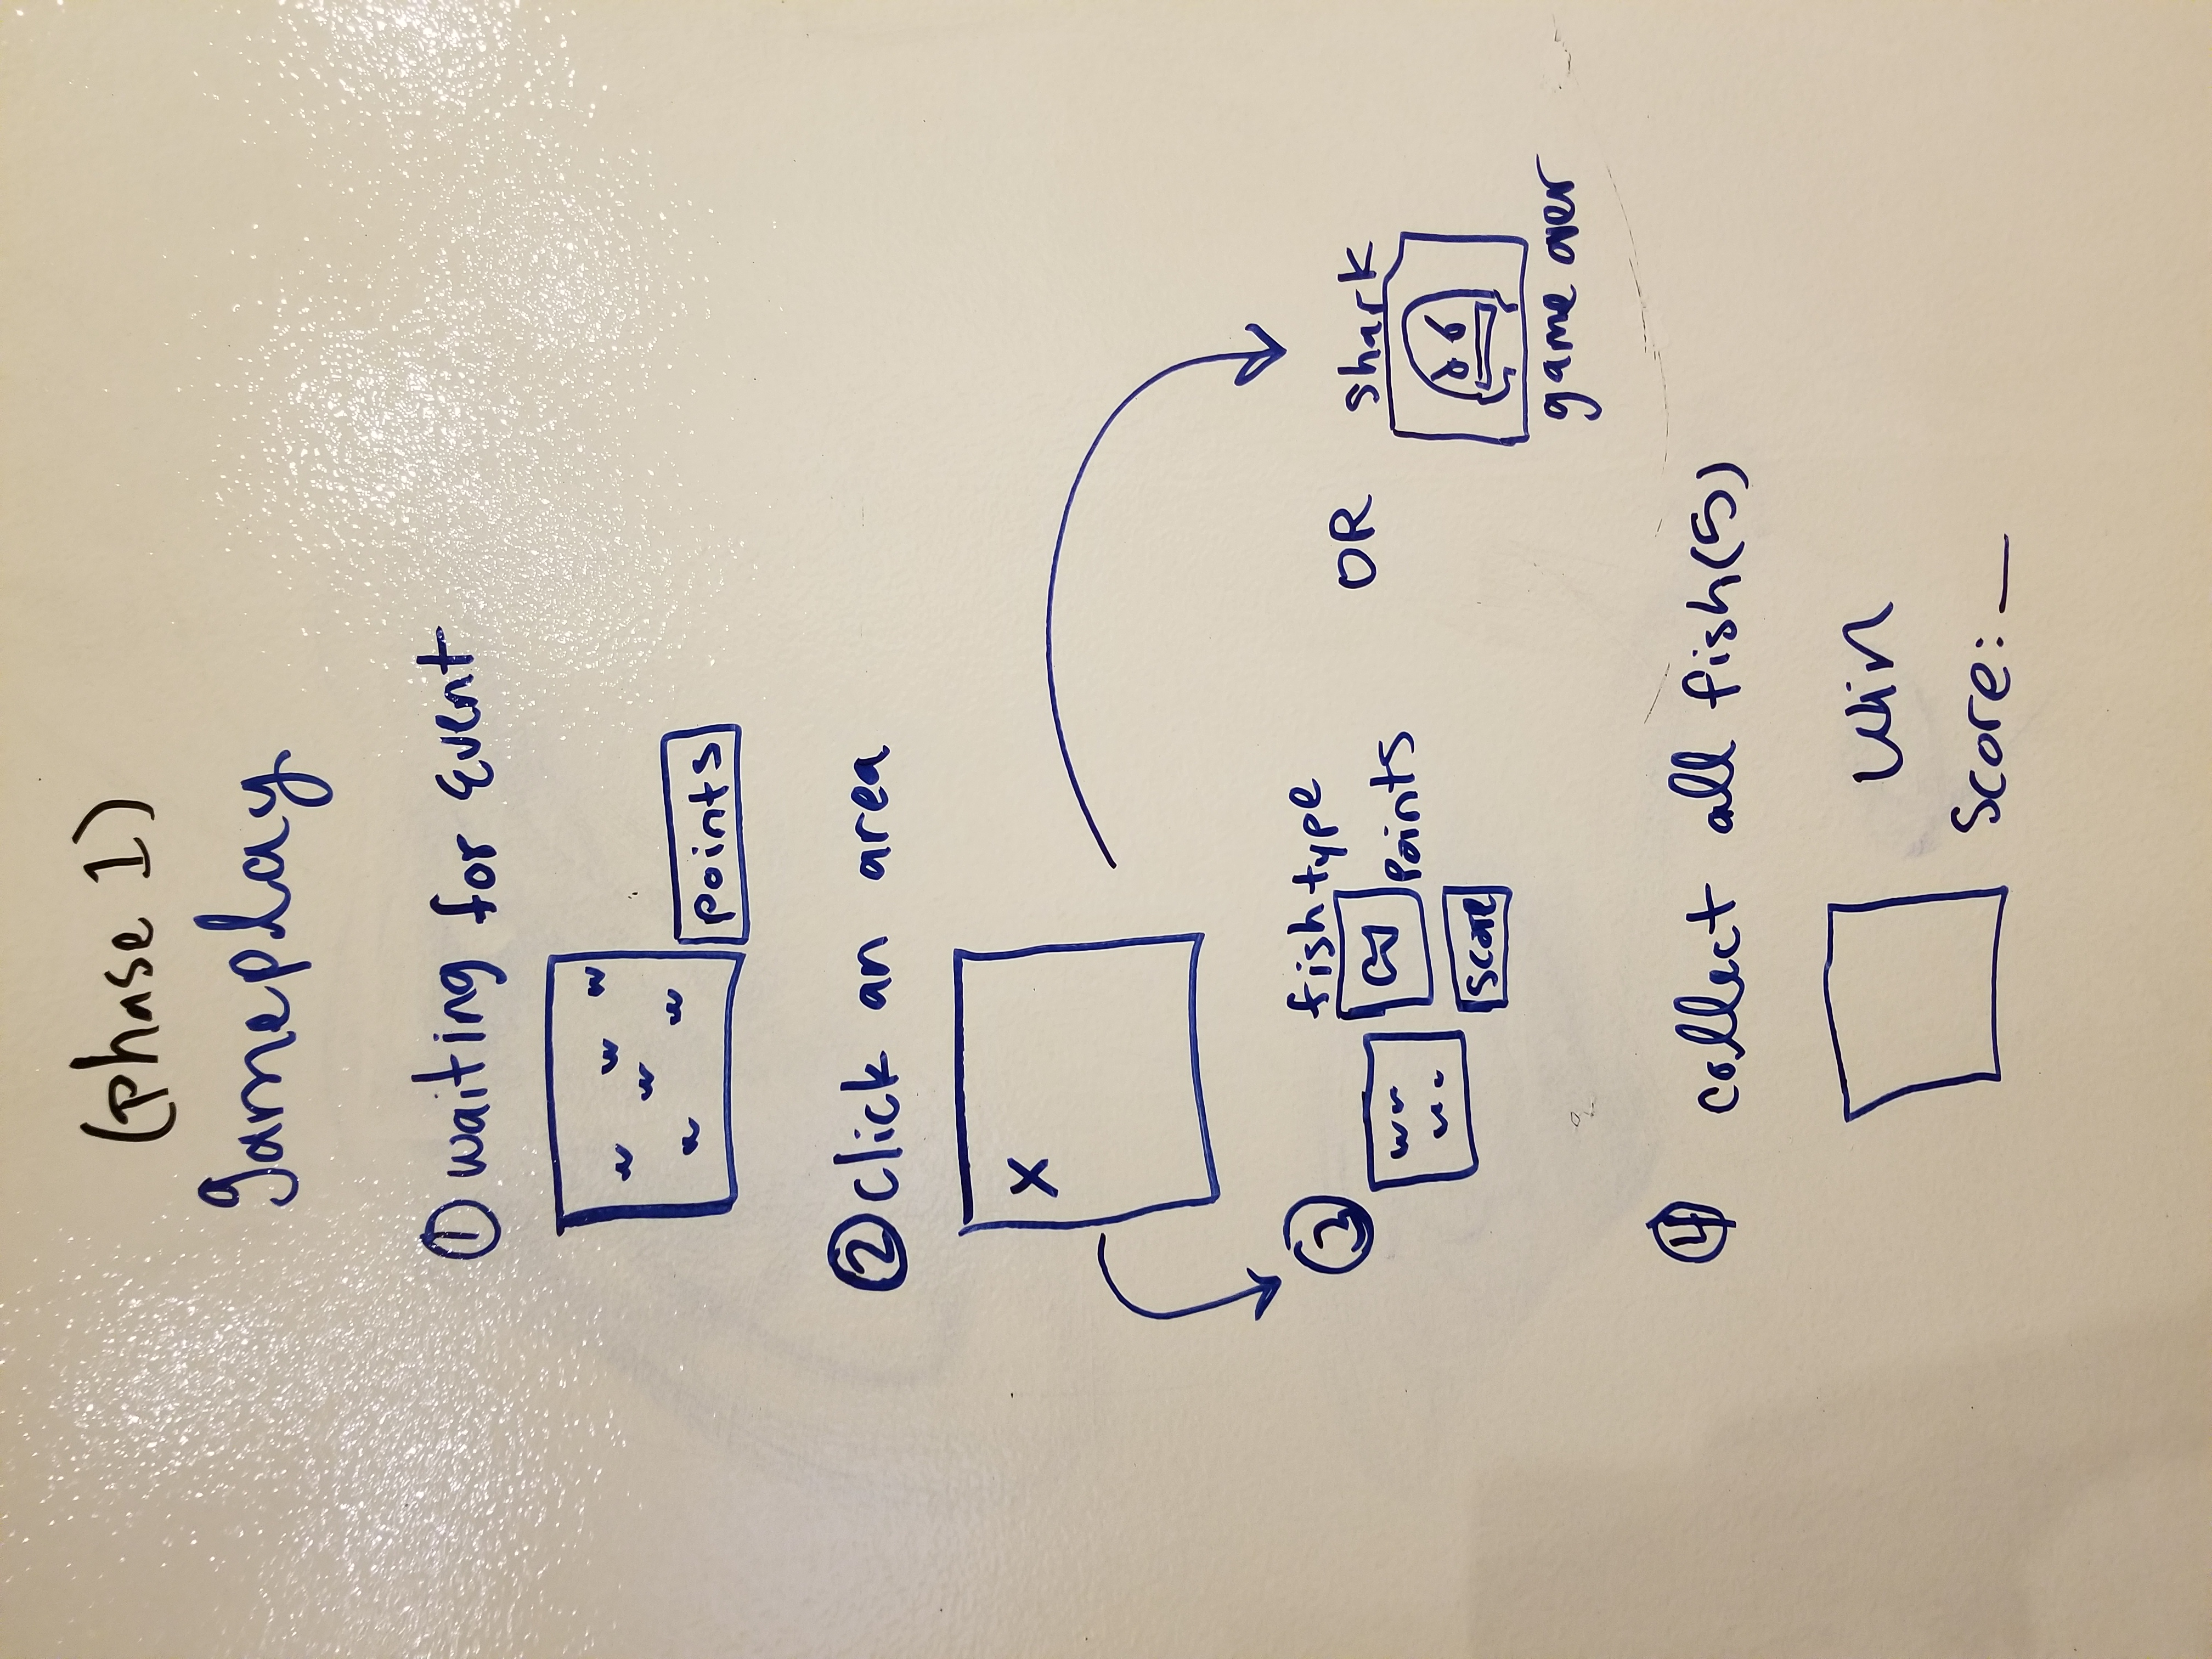 (phase 1)
gameplay
① waiting for Event
points
② click an area
X
③
fish type
points
score
OR
shark
game over
④ collect all fish(5)
Win
Score: __